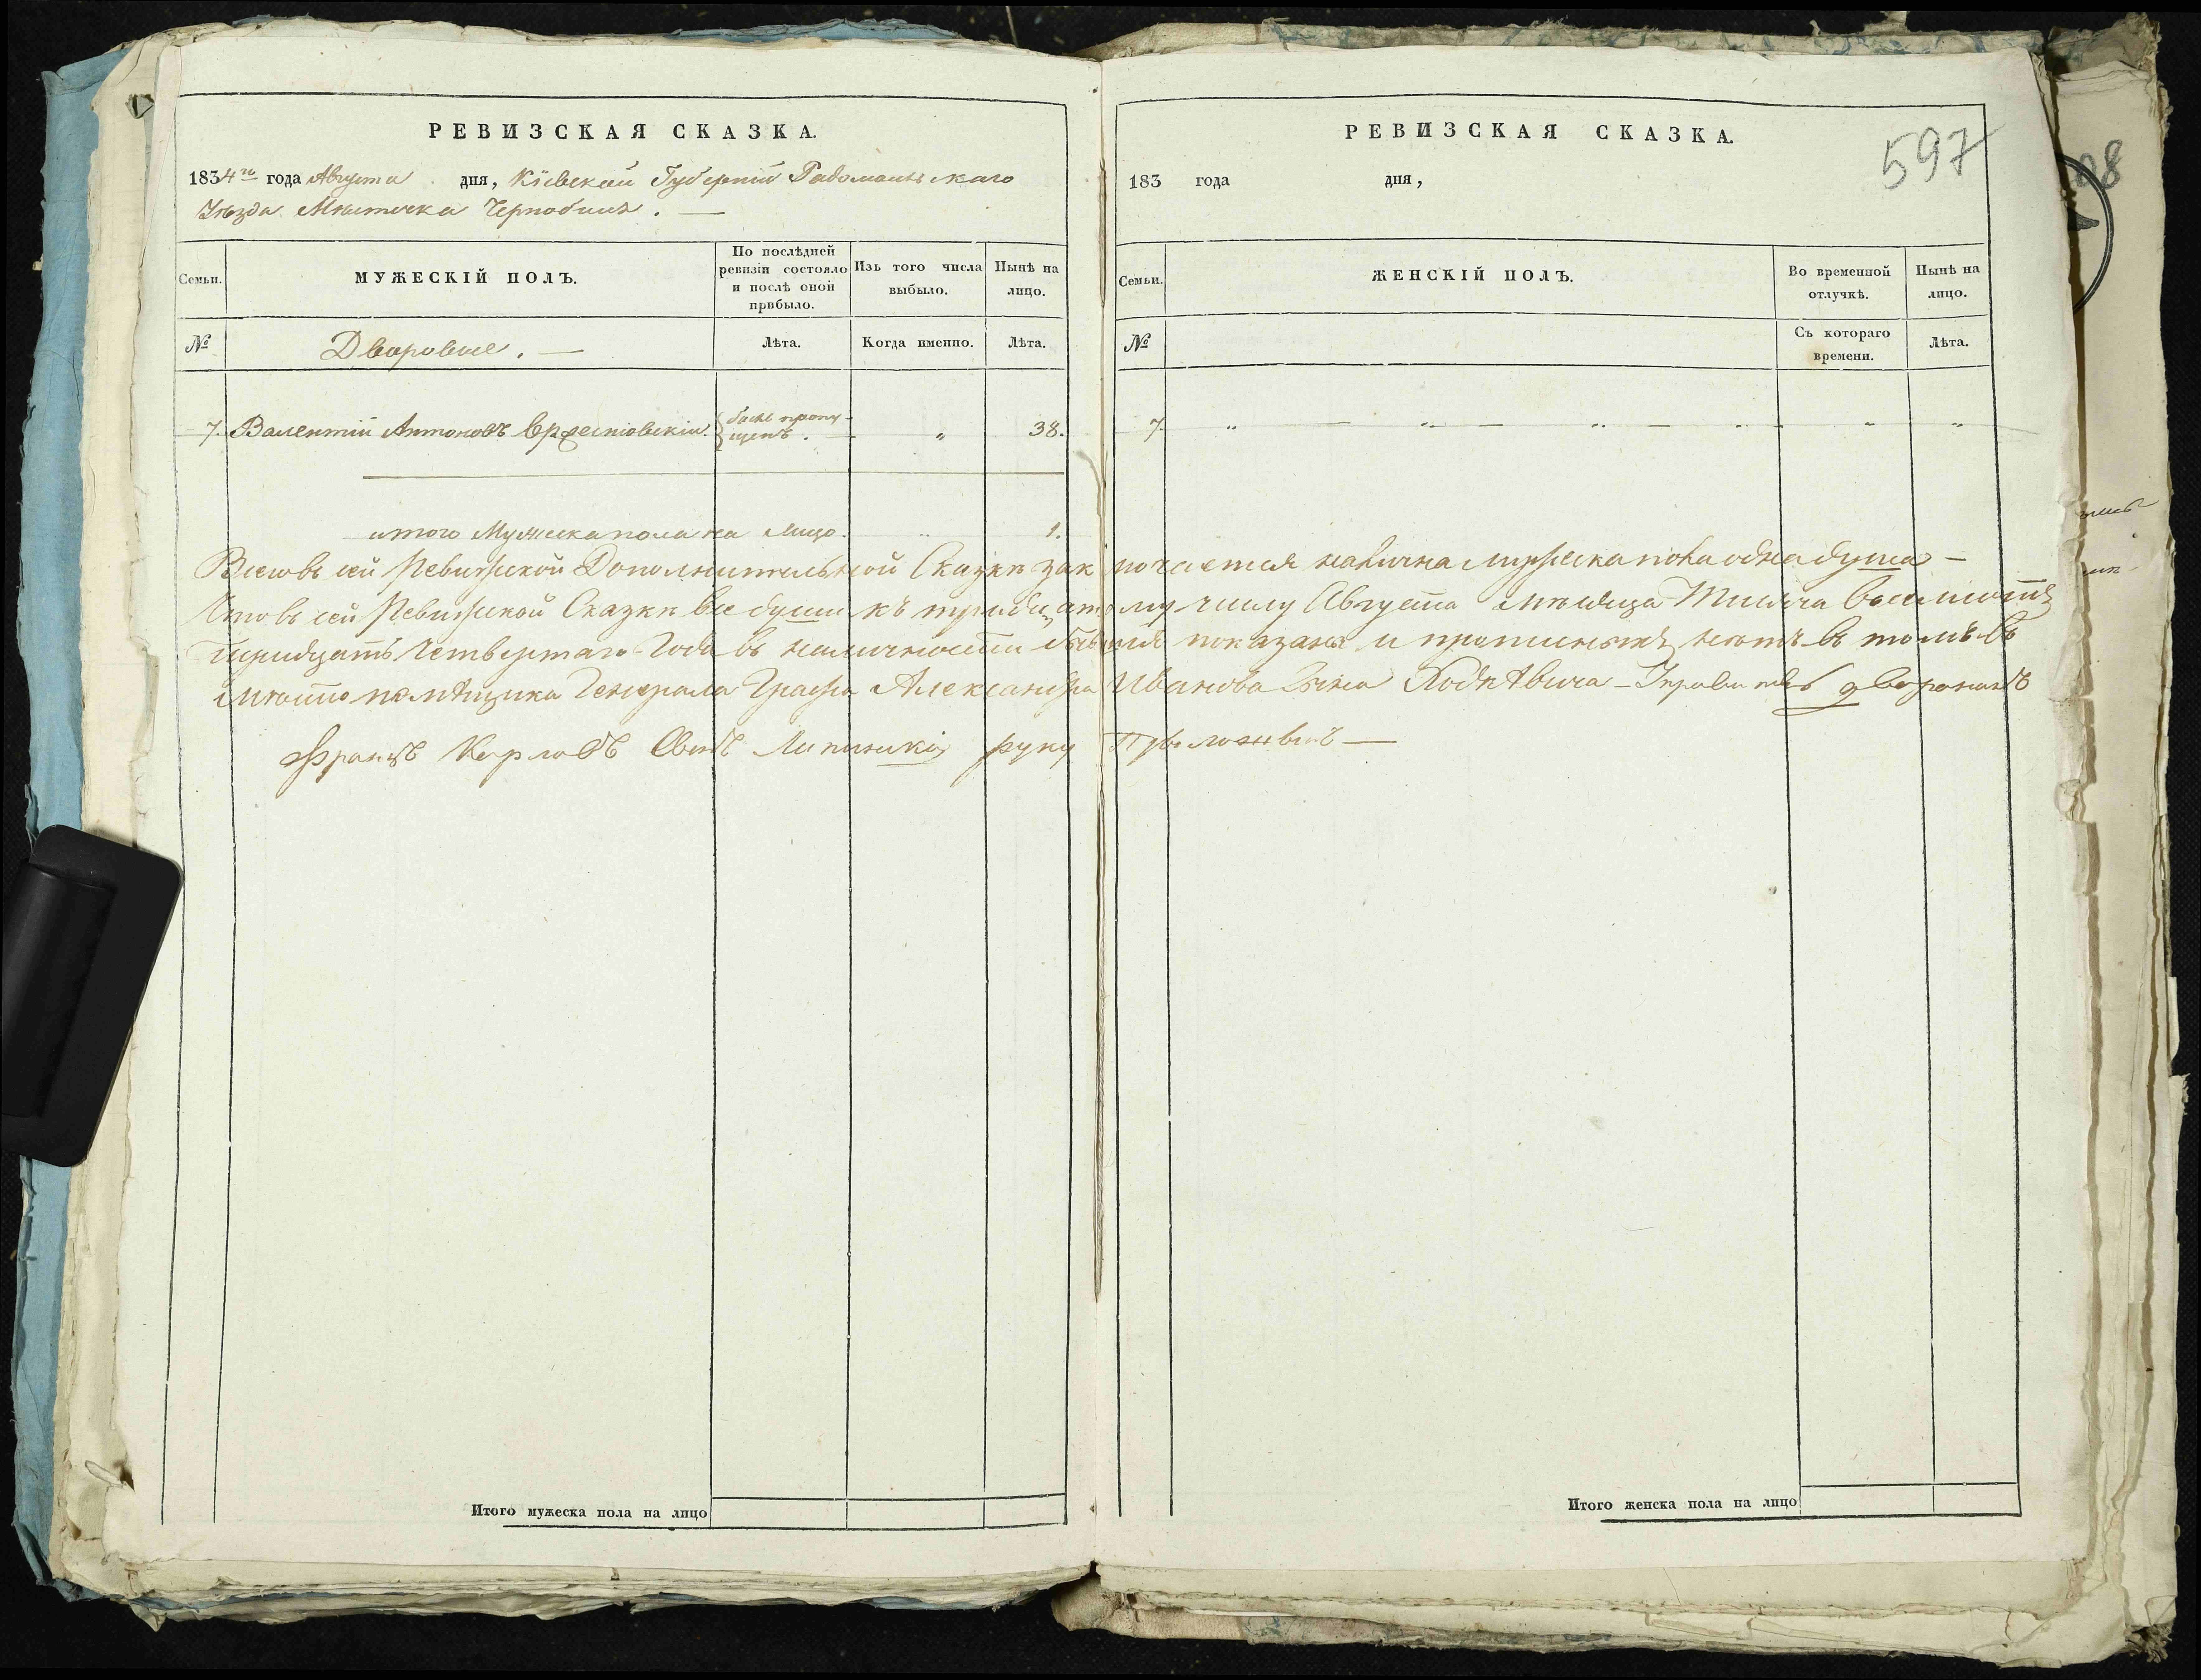 РЕВИЗСКАЯ СКАЗКА.
1834го года Августа дня, Кіевской Губерніи Радомышльскаго
Уѣзда Мѣстечка Чернобиля. —
Семьи.
МУЖЕСКІЙ ПОЛЪ.
По послѣдней ревизіи состояло и послѣ оной прибыло.
Изъ того числа выбыло.
Нынѣ на лицо.
№
Дворовые. —
Лѣта.
Когда именно.
Лѣта.
7. Валентій Антоновъ
былъ пропу-
щенъ. — „ 38.
итого Мужеска пола на лицо. „ 1.
РЕВИЗСКАЯ СКАЗКА.
597
183 года дня,
Семьи.
ЖЕНСКІЙ ПОЛЪ.
Во временной отлучкѣ.
Нынѣ на лицо.
№
Съ котораго времени.
Лѣта.
7. „ — „ — „ — „ „ „
Всего въ сей Ревизской Дополнительной Сказкѣ заключается налична мужеска пола одна душа —
Что въ сей Ревизской Сказкѣ все души къ тридцатому числу Августа мѣсяца Тысяча восимсотъ
тридцать Четвертаго Года въ наличности показаны и нетъ въ томъ въ
мѣсто помѣщика Генерала Графа Александра Иванова Сына Ходкѣвича – дворонинъ
Францъ Карловъ Сынъ Липинскій руку Приложивъ —
Итого мужеска пола на лицо
Итого женска пола на лицо